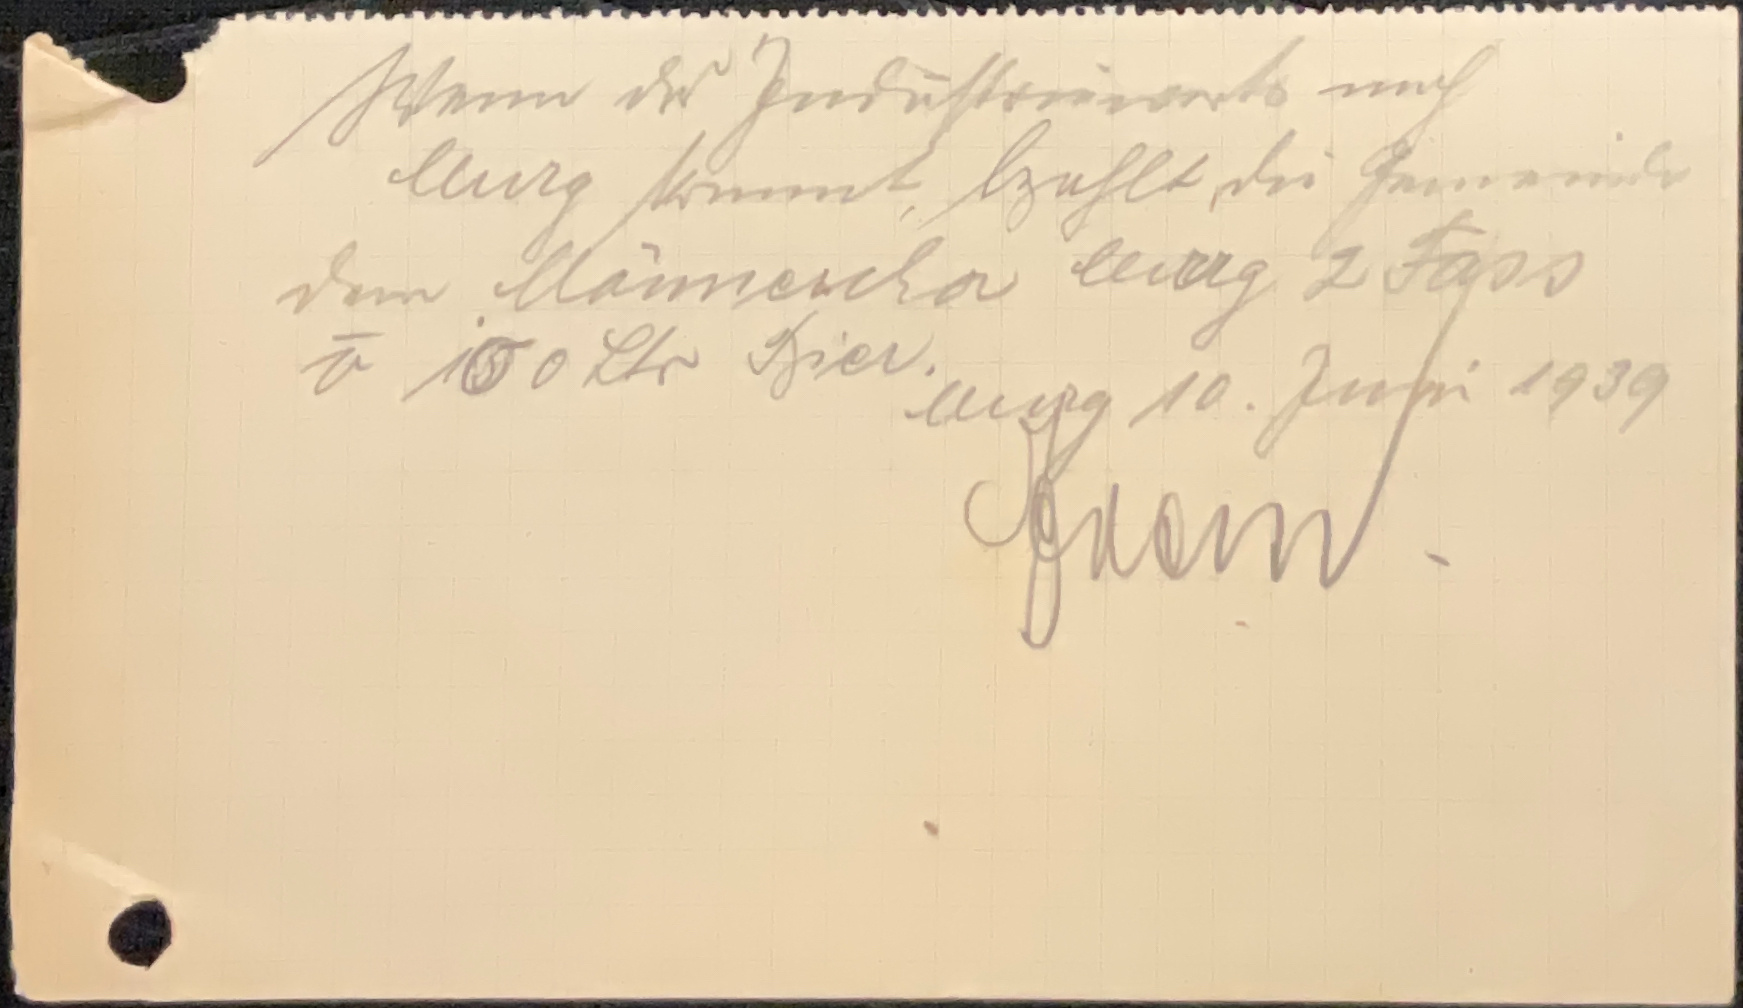 Wenn das Industriewerk nach
Murg kommt, bezahlt die Gemeinde
dem Männerchor Murg 2 Fass
150 Ltr Bier.
Murg 10. Juni 1939